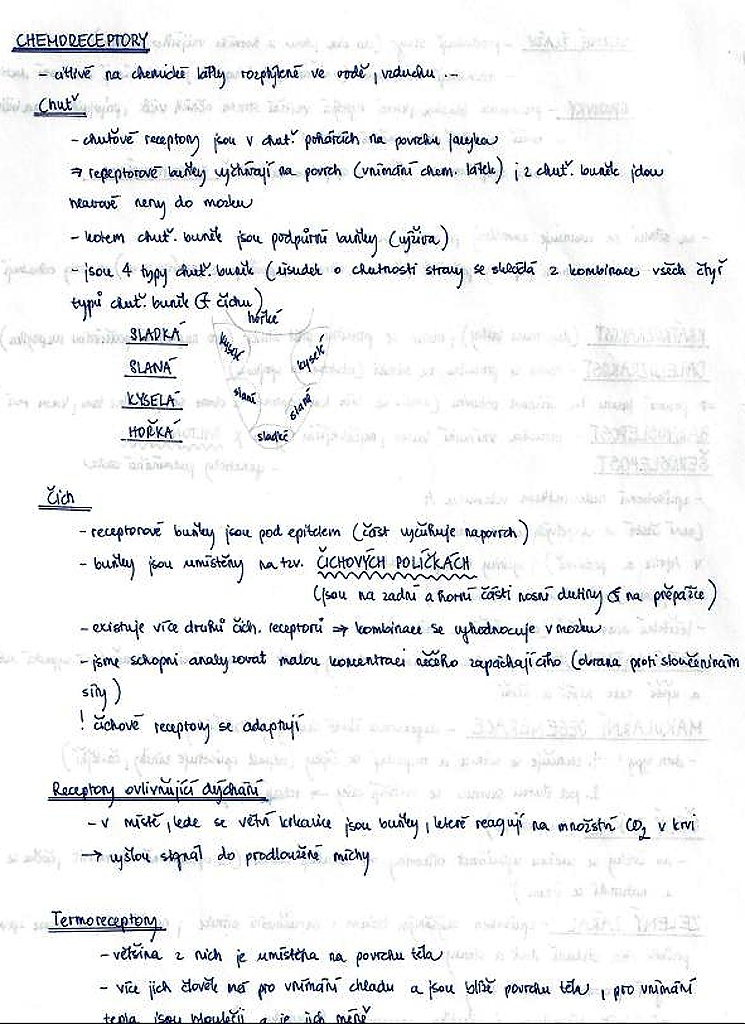 CHEMORECEPTORY
- citlivé na chemické látky rozptýlené ve vodě, vzduchu ...
Chuť
- chuťové receptory jsou v chuť. pohárcích na povrchu jazyka
⇒ receptorové buňky vyčnívají na povrch (vnímání chem. látek) ; z chuť. buněk jdou
nervové nervy do mozku
- kolem chuť. buněk jsou podpůrné buňky (výživa)
- jsou 4 typy chuť. buněk (úsudek o chutnosti stravy se skládá z kombinace všech čtyř
typů chuť. buněk (+ čichu)
hořké
SLADKÁ kyselé kyselé
SLANÁ
KYSELÁ slané slaná
HOŘKÁ sladké
Čich
- receptorové buňky jsou pod epitelem (část vyčuhuje napovrch)
- buňky jsou umístěny na tzv. ČICHOVÝCH POLÍČKÁCH
(jsou na zadní a horní části nosní dutiny & na přepážce)
- existuje více druhů čich. receptorů ⇒ kombinace se vyhodnocuje v mozku
- jsme schopni analyzovat malou koncentraci něčeho zapáchajícího (obrana proti sloučeninám
síry)
! čichové receptory se adaptují
Receptory ovlivňující dýchání
- v místě, kde se větví krkavice jsou buňky, které reagují na množství CO2 v krvi
→ vyšlou signál do prodloužené míchy
Termoreceptory
- většina z nich je umístěna na povrchu těla
- více jich člověk má pro vnímání chladu a jsou blíže povrchu těla, pro vnímání
tepla jsou hlouběji a je jich méně